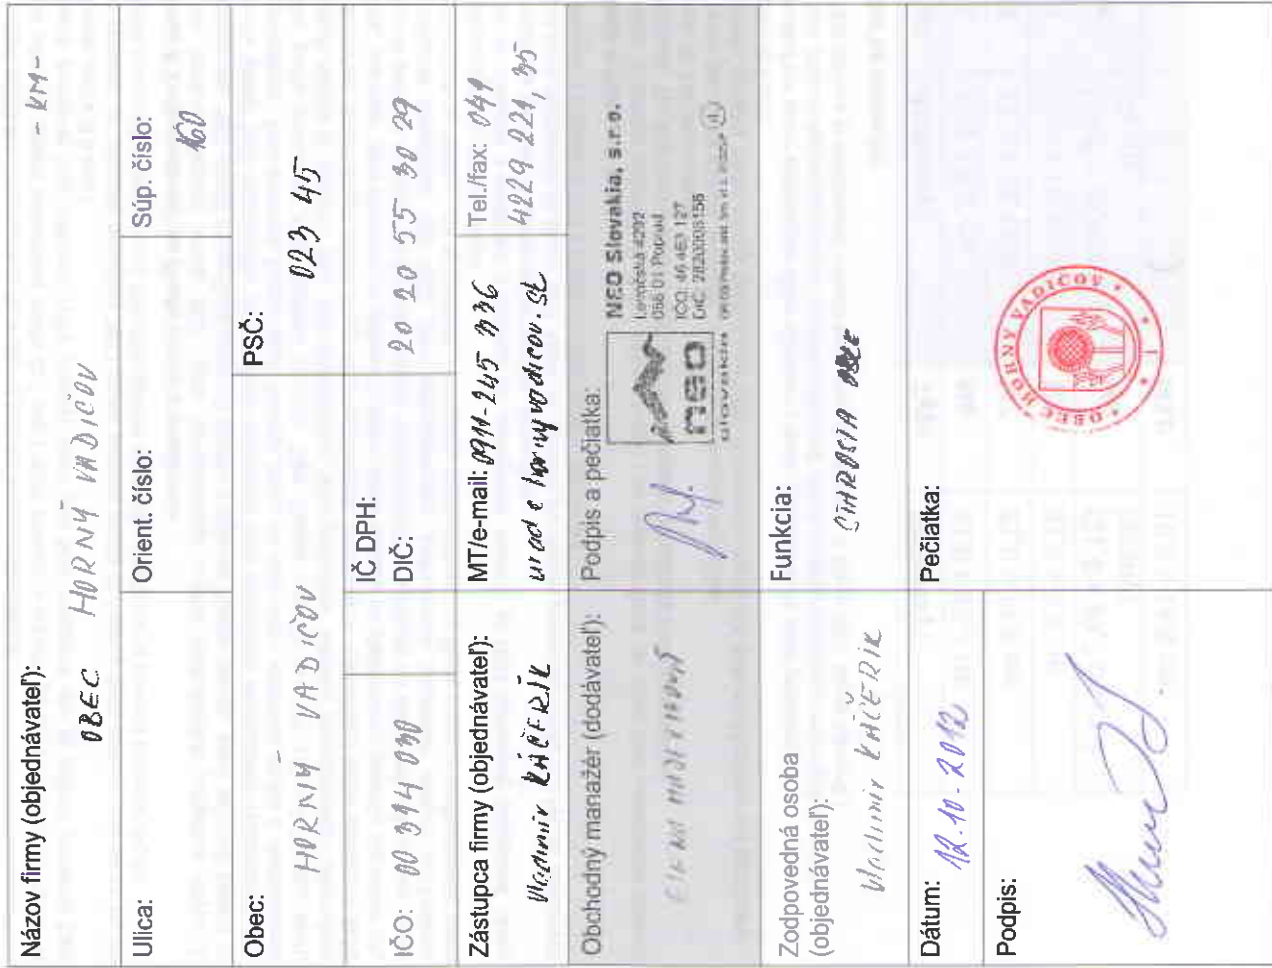 Názov firmy (objednávateľ): -KM-
OBEC HORNÝ VADIČOV
Ulica:
Orient. číslo:
Súp. číslo:
160
Obec:
HORNÝ VADIČOV
PSČ:
023 45
IČO: 00 314 030
IČ DPH:
DIČ: 20 20 55 30 29
Zástupca firmy (objednávateľ):
Vladimír KÁČERIK
MT/e-mail: 0911-245 336
urad@hornyvadicov.sk
Tel./fax: 041
4229 221, 35
Obchodný manažér (dodávateľ):
Podpis a pečiatka:
neo
slovakia
NEO Slovakia, s.r.o.
Levočská 4292
058 01 Poprad
IČO: 46 463 127
Zodpovedná osoba
(objednávateľ):
Vladimír KÁČERIK
Funkcia:
STAROSTA OBCE
Dátum: 12.10.2012
Podpis:
Pečiatka:
OBEC HORNÝ VADIČOV